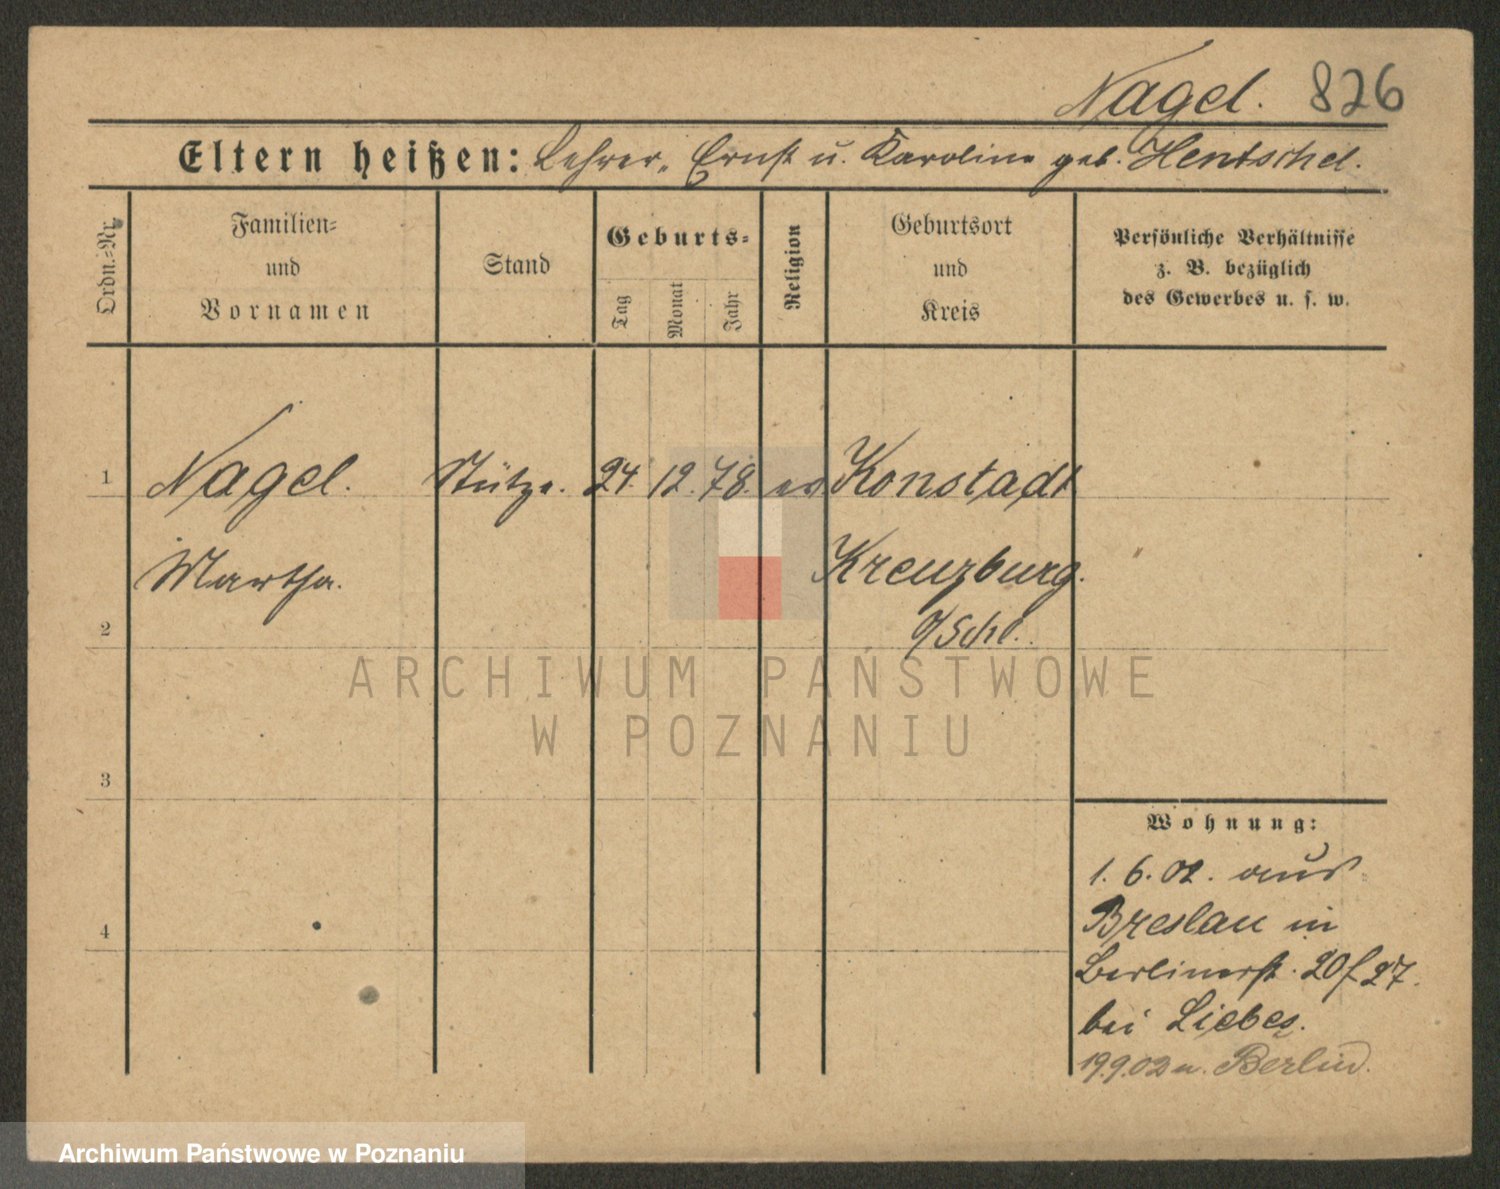 Nagel. 826
Eltern heißen: Lehrer, Ernst u. Karoline geb. Hentschel.
Ordn.-Nr.
Familien-
und
Vornamen
Stand
Geburts-
Tag
Monat
Jahr
Religion
Geburtsort
und
Kreis
Persönliche Verhältnisse
z. B. bezüglich
des Gewerbes u. s. w.
1 Nagel. Stütze. 24. 12. 78. ev Konstadt
Martha. Kreuzburg.
2 O/Schl.
ARCHIWUM PAŃSTWOWE
W POZNANIU
3
Wohnung:
1. 6. 02. aus
Breslau in
4
Berlinerst. 20 f 27.
bei Liebes.
19.9.02 n. Berlin.
Archiwum Państwowe w Poznaniu